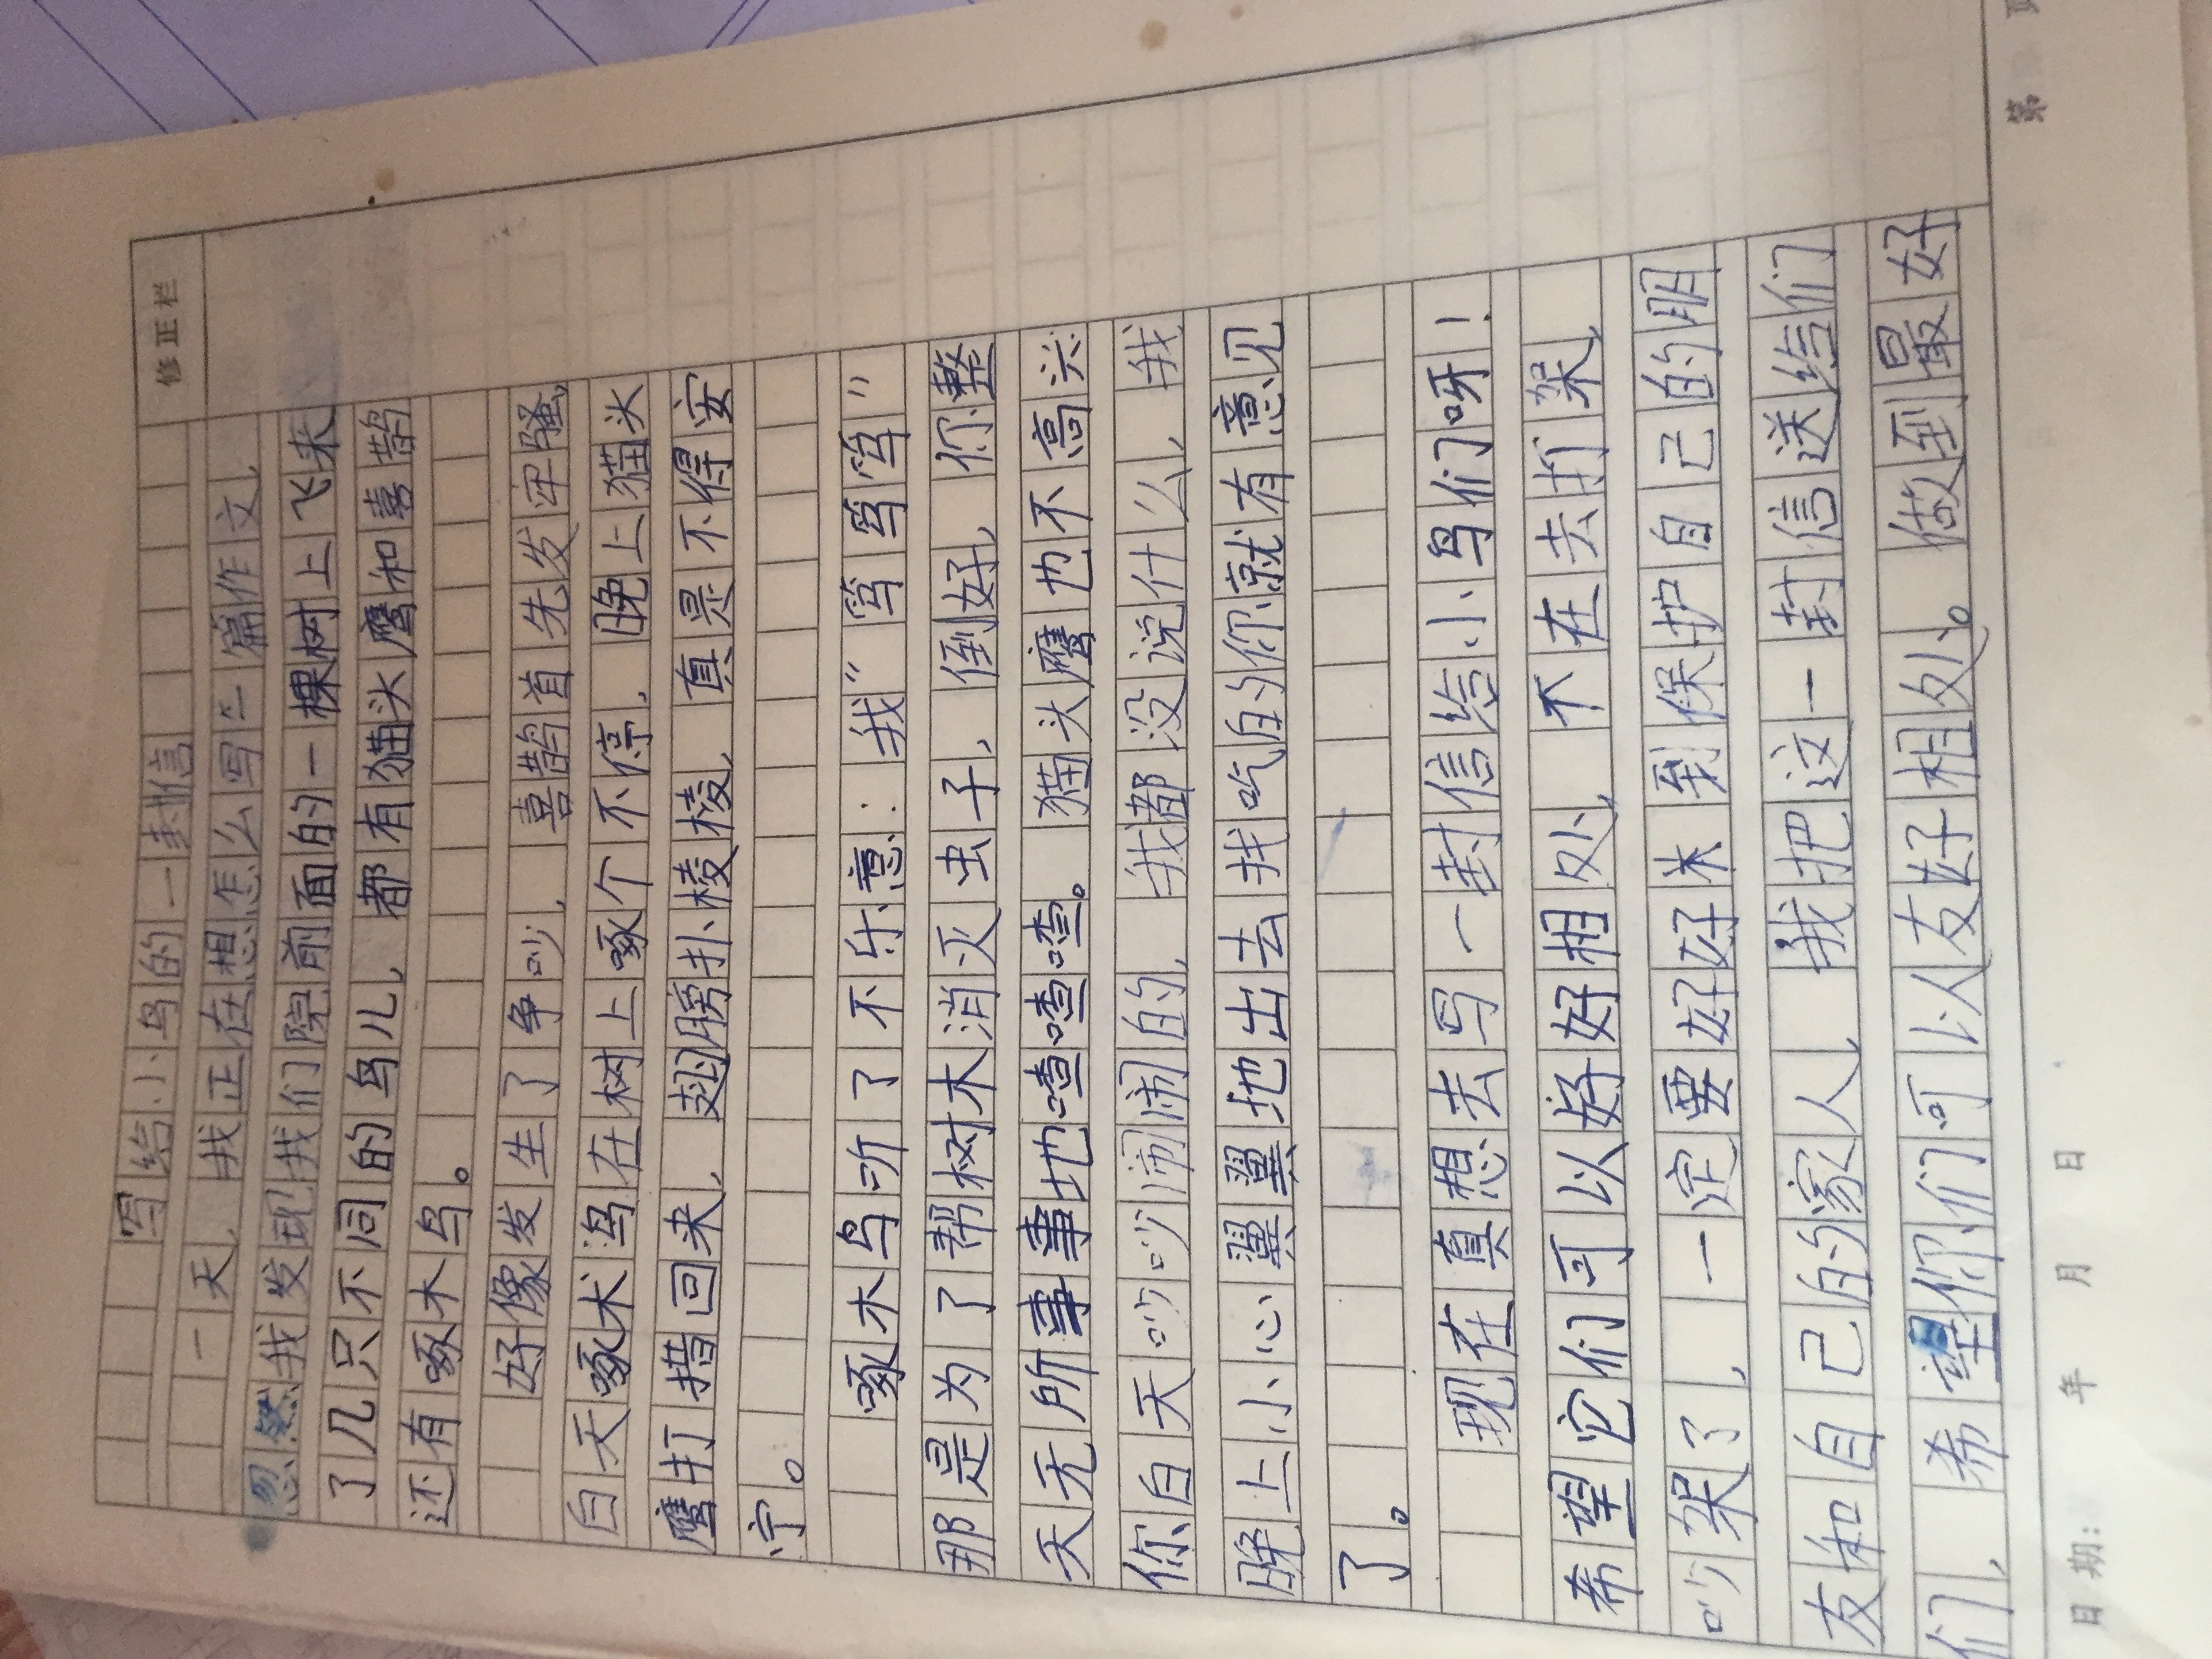 修正栏
写给小鸟的一封信
一天，我正在想怎么写一篇作文，
忽然我发现我们院前面的一棵树上飞来
了几只不同的鸟儿，都有猫头鹰和喜鹊
还有啄木鸟。
好像发生了争吵，喜鹊首先发牢骚，
白天啄木鸟在树上啄个不停，晚上猫头
鹰打措回来，翅膀扑棱棱，真是不得安
宁。
啄木鸟听了不乐意：我"笃笃笃"
那是为了帮树木消灭虫子，倒好，你整
天无所事事地喳喳喳。猫头鹰也不高兴
你白天吵吵闹闹的，我都没说什么，我
晚上小心翼翼地出去找吃的你就有意见
了。
现在真想去写一封信给小鸟们呀！
希望它们可以好好相处，不在去打架，
吵架了，一定要好好来到保护自己的朋
友和自己的家人，我把这一封信送给们
们，希望你们可以友好相处。做到最好
日期： 年 月 日
第 页